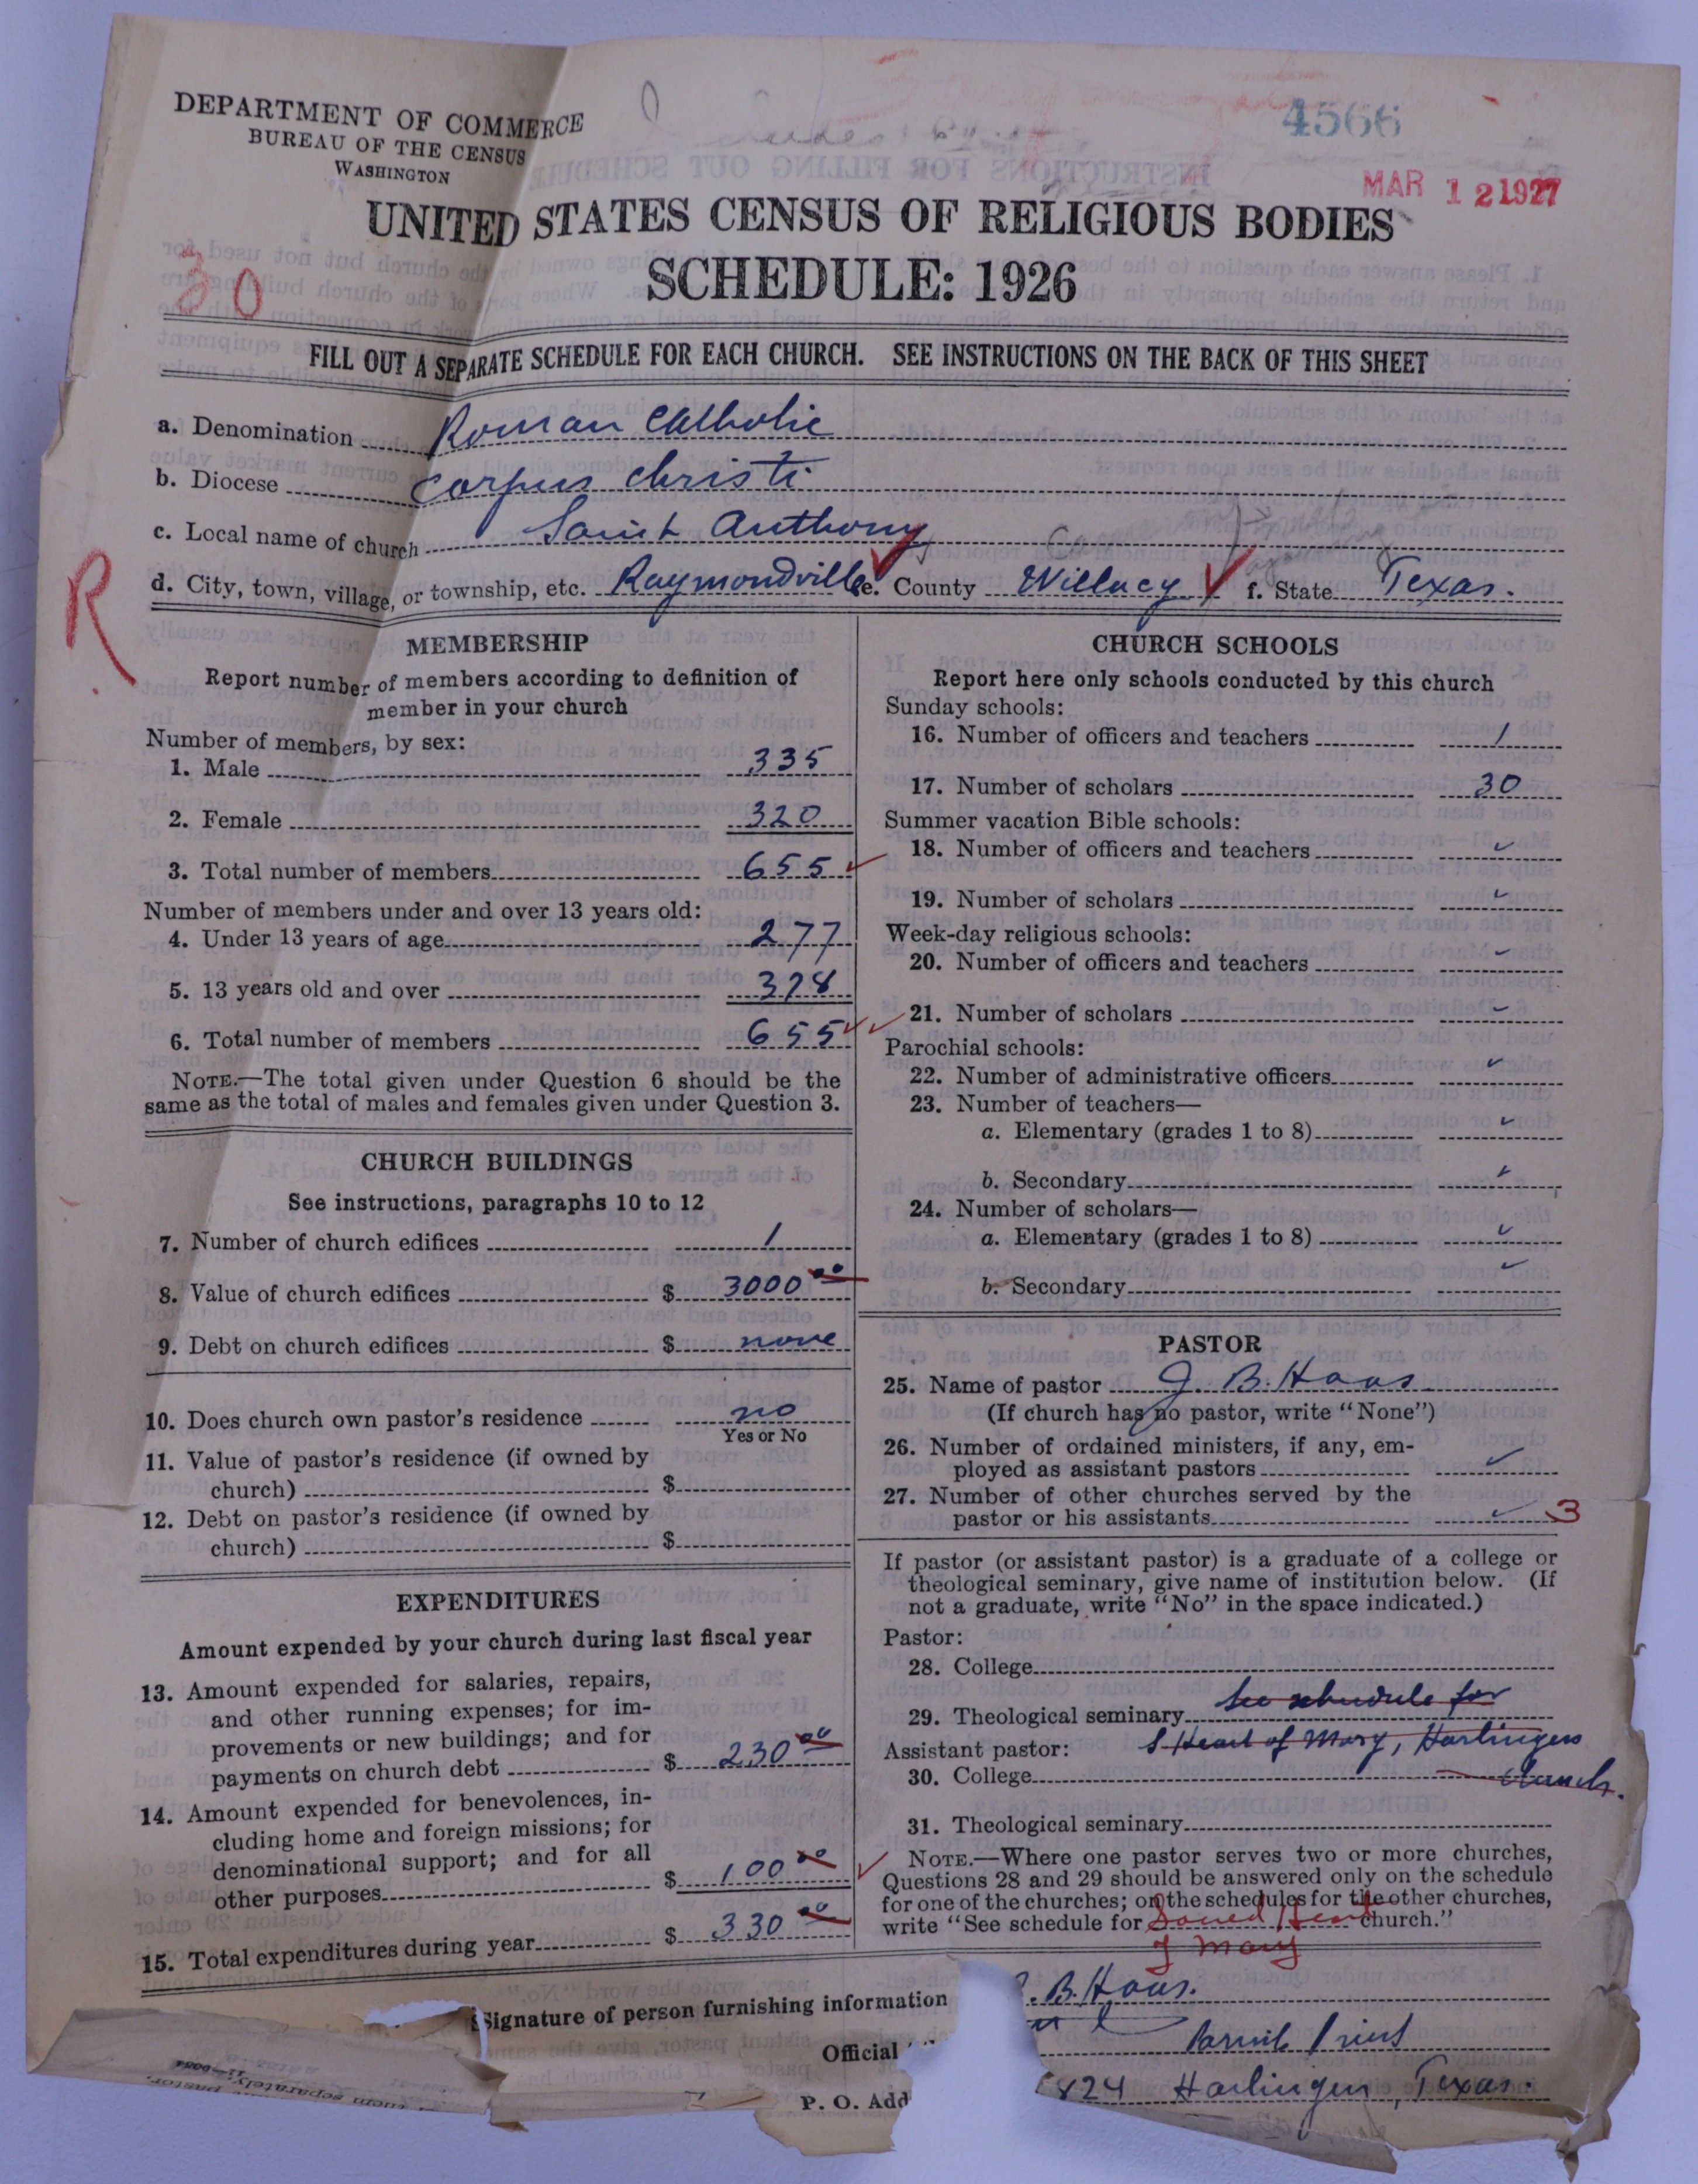 DEPARTMENT OF COMMERCE
BUREAU OF THE CENSUS
WASHINGTON
4566
MAR 12 1927
UNITED STATES CENSUS OF RELIGIOUS BODIES
SCHEDULE: 1926
30
FILL OUT A SEPARATE SCHEDULE FOR EACH CHURCH. SEE INSTRUCTIONS ON THE BACK OF THIS SHEET
a. Denomination Roman Catholic
b. Diocese Corpus Christi
c. Local name of church Saint Anthony
R
d. City, town, village, or township, etc. Raymondville e. County Willacy f. State Texas.
MEMBERSHIP
Report number of members according to definition of
member in your church
Number of members, by sex:
1. Male 335
2. Female 320
3. Total number of members 655
Number of members under and over 13 years old:
4. Under 13 years of age 277
5. 13 years old and over 378
6. Total number of members 655
NOTE.—The total given under Question 6 should be the
same as the total of males and females given under Question 3.
CHURCH BUILDINGS
See instructions, paragraphs 10 to 12
7. Number of church edifices 1
8. Value of church edifices $ 3000 00
9. Debt on church edifices $ none
10. Does church own pastor's residence no
Yes or No
11. Value of pastor's residence (if owned by
church) $
12. Debt on pastor's residence (if owned by
church) $
EXPENDITURES
Amount expended by your church during last fiscal year
13. Amount expended for salaries, repairs,
and other running expenses; for im-
provements or new buildings; and for
payments on church debt $ 230 00
14. Amount expended for benevolences, in-
cluding home and foreign missions; for
denominational support; and for all
other purposes $ 100 00
15. Total expenditures during year $ 330 00
CHURCH SCHOOLS
Report here only schools conducted by this church
Sunday schools:
16. Number of officers and teachers 1
17. Number of scholars 30
Summer vacation Bible schools:
18. Number of officers and teachers
19. Number of scholars
Week-day religious schools:
20. Number of officers and teachers
21. Number of scholars
Parochial schools:
22. Number of administrative officers
23. Number of teachers—
a. Elementary (grades 1 to 8)
b. Secondary
24. Number of scholars—
a. Elementary (grades 1 to 8)
b. Secondary
PASTOR
25. Name of pastor J. B. Haas
(If church has no pastor, write "None")
26. Number of ordained ministers, if any, em-
ployed as assistant pastors
27. Number of other churches served by the
pastor or his assistants 3
If pastor (or assistant pastor) is a graduate of a college or
theological seminary, give name of institution below. (If
not a graduate, write "No" in the space indicated.)
Pastor:
28. College
29. Theological seminary See schedule for
Assistant pastor: S Heart of Mary, Harlingen
30. College church.
31. Theological seminary
NOTE.—Where one pastor serves two or more churches,
Questions 28 and 29 should be answered only on the schedule
for one of the churches; on the schedules for the other churches,
write "See schedule for Sacred Heart church."
of Mary
Signature of person furnishing information . B. Haas.
Official Parish Priest
P. O. Add 824 Harlingen, Texas.